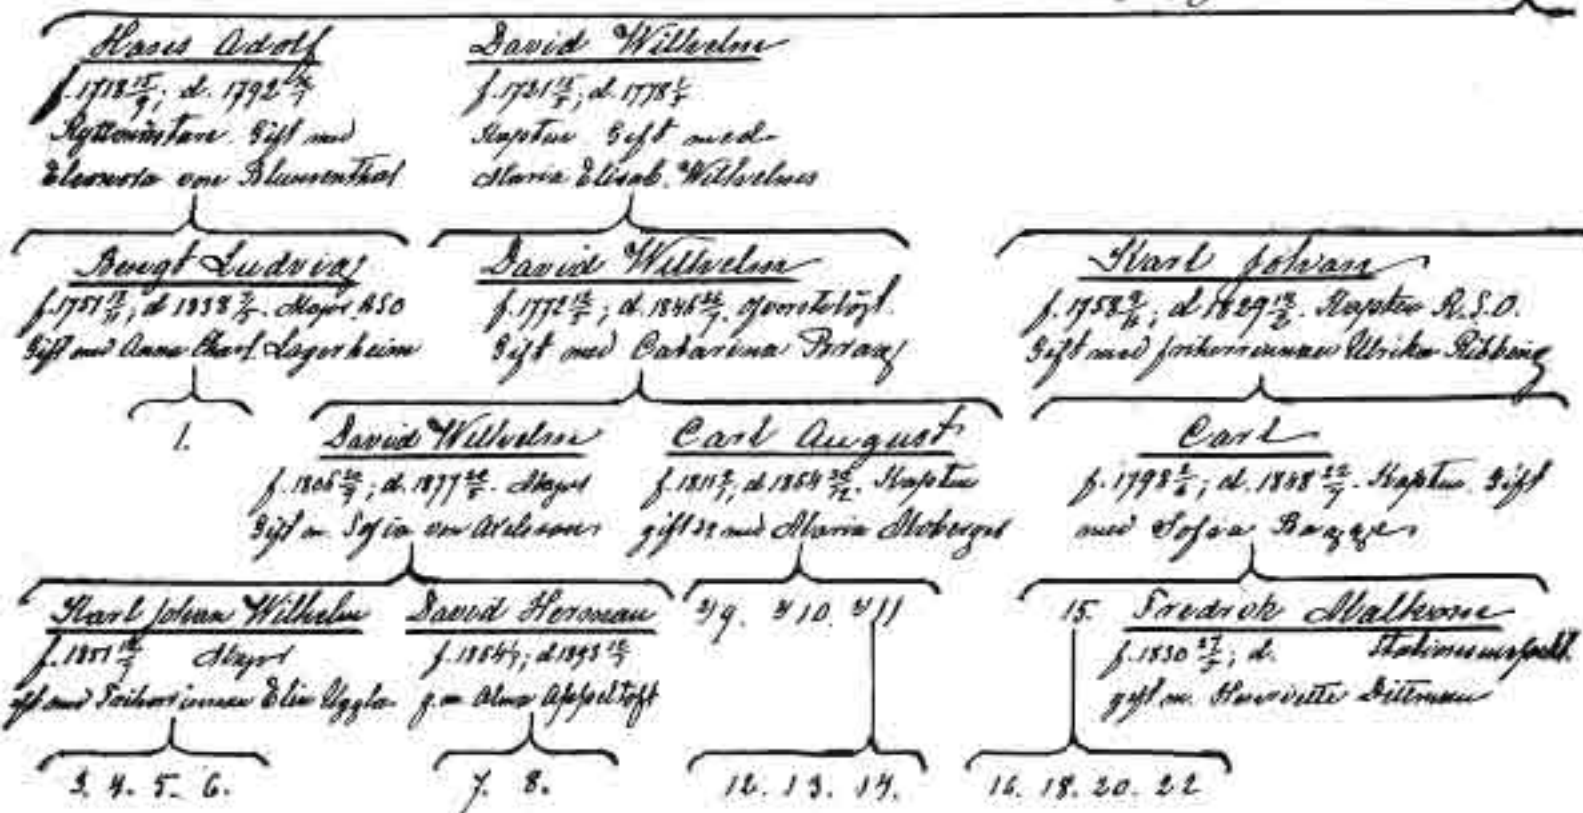 Hans Adolf
f. 1718 15/9; d. 1792
Ryttmästare. Gift med
Eleonora von Blumenthal
David Wilhelm
f. 1721; d. 1778
Kapten Gift med
Maria Elisab. Wilhelms
Bengt Ludvig
f. 1751; d. 1838. Major RSO
Gift med Anna Charl. Lagerheim
David Wilhelm
f. 1772; d. 1846.
Gift med Catarina
Karl Johan
f. 1758; d. 1829. Kapten R.S.O.
Gift med friherrinnan Ulrika Ribbing
1.
David Wilhelm
f. 1806; d. 1877. Major
Gift m. Sofia von
Carl August
f. 1811; d. 1864. Kapten
gift med Maria Moberger
Carl
f. 1798; d. 1848. Kapten. Gift
med Sofia Bagge
Karl Johan Wilhelm
f. 1851 Major
gift med Friherrinnan Elin Uggla
David Herman
f. 1854; d. 1893
g. m. Alma Appeltoft
9. 10. 11
15. Fredrik Malkom
f. 1830; d.
gift m. Henriette Dittman
3. 4. 5. 6.
7. 8.
12. 13. 14.
16. 18. 20. 22